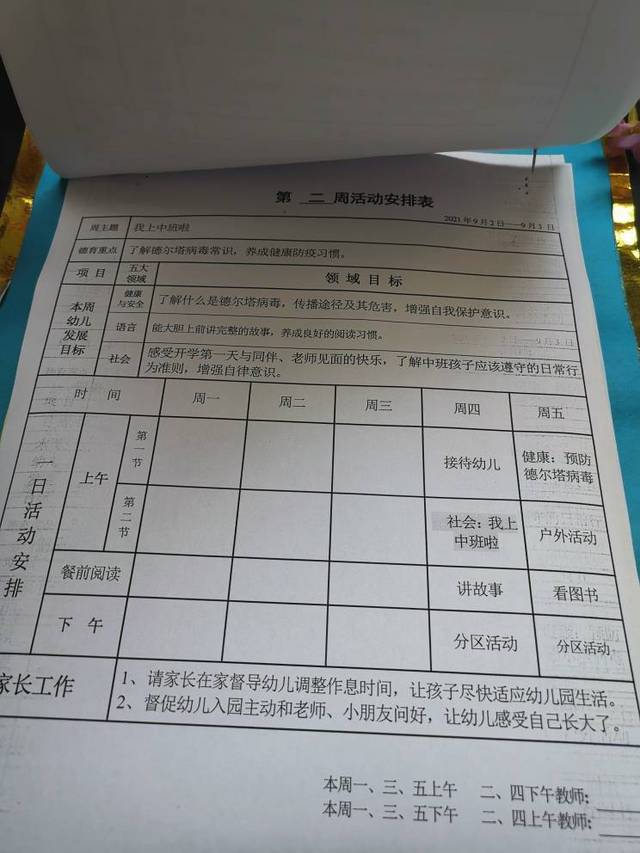 第 二 周活动安排表
2021年9月2日——9月3日
周主题 我上中班啦
德育重点 了解德尔塔病毒常识，养成健康防疫习惯。
项 目 五大领域 领 域 目 标
本周幼儿发展目标
健康与安全 了解什么是德尔塔病毒，传播途径及其危害，增强自我保护意识。
语言 能大胆上前讲完整的故事，养成良好的阅读习惯。
社会 感受开学第一天与同伴、老师见面的快乐，了解中班孩子应该遵守的日常行
为准则，增强自律意识。
时 间 周一 周二 周三 周四 周五
一日活动安排
上午 第一节 接待幼儿 健康：预防
德尔塔病毒
第二节 社会：我上 户外活动
中班啦
餐前阅读 讲故事 看图书
下 午 分区活动 分区活动
家长工作
1、请家长在家督导幼儿调整作息时间，让孩子尽快适应幼儿园生活。
2、督促幼儿入园主动和老师、小朋友问好，让幼儿感受自己长大了。
本周一、三、五上午 二、四下午教师:
本周一、三、五下午 二、四上午教师: